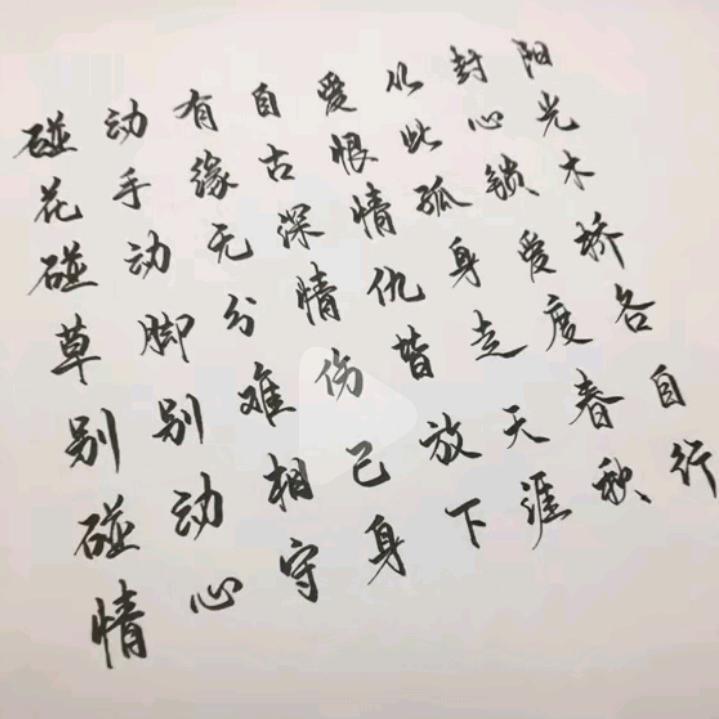 碰花碰草别碰情
动手动脚别动心
有缘无分难相守
自古深情伤己身
爱恨情仇皆放下
从此孤身走天涯
封心锁爱度春秋
阳光木桥各自行